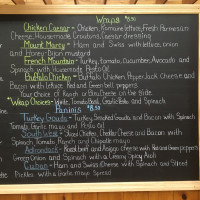 Wraps $8.50
Chicken Caesar - Chicken, Romaine lettuce, Fresh Parmesan
Cheese, Housemade Croutons, Caesar dressing
Mount Marty - Ham and Swiss with lettuce, onion
and Honey Dijon mustard
French Mountain - Turkey, tomato, Cucumber, Avocado and
Spinach with Housemade
Buffalo Chicken - Buffalo Chicken, Pepper Jack Cheese and
Bacon with lettuce, Red and Green bell peppers
Your choice of Ranch or Bleu Cheese on the side
*Wrap Choices - White, Tomato Basil, Garlic Pesto and Spinach
Paninis $8.50
Turkey Gouda - Turkey, Smoked Gouda and Bacon with Spinach
Tomato, Garlic mayo and Pesto Oil
Southwest - Chicken, Cheddar Cheese and Bacon with
Spinach, Tomato, Ranch and Chipotle mayo
Adirondack - Roast beef and Asiago Cheese with Red and Green peppers
Green Onion and Spinach with a Creamy Spicy Aioli
Cuban - Ham and Swiss Cheese with Spinach and Sliced
Pickles with a Garlic mayo Spread